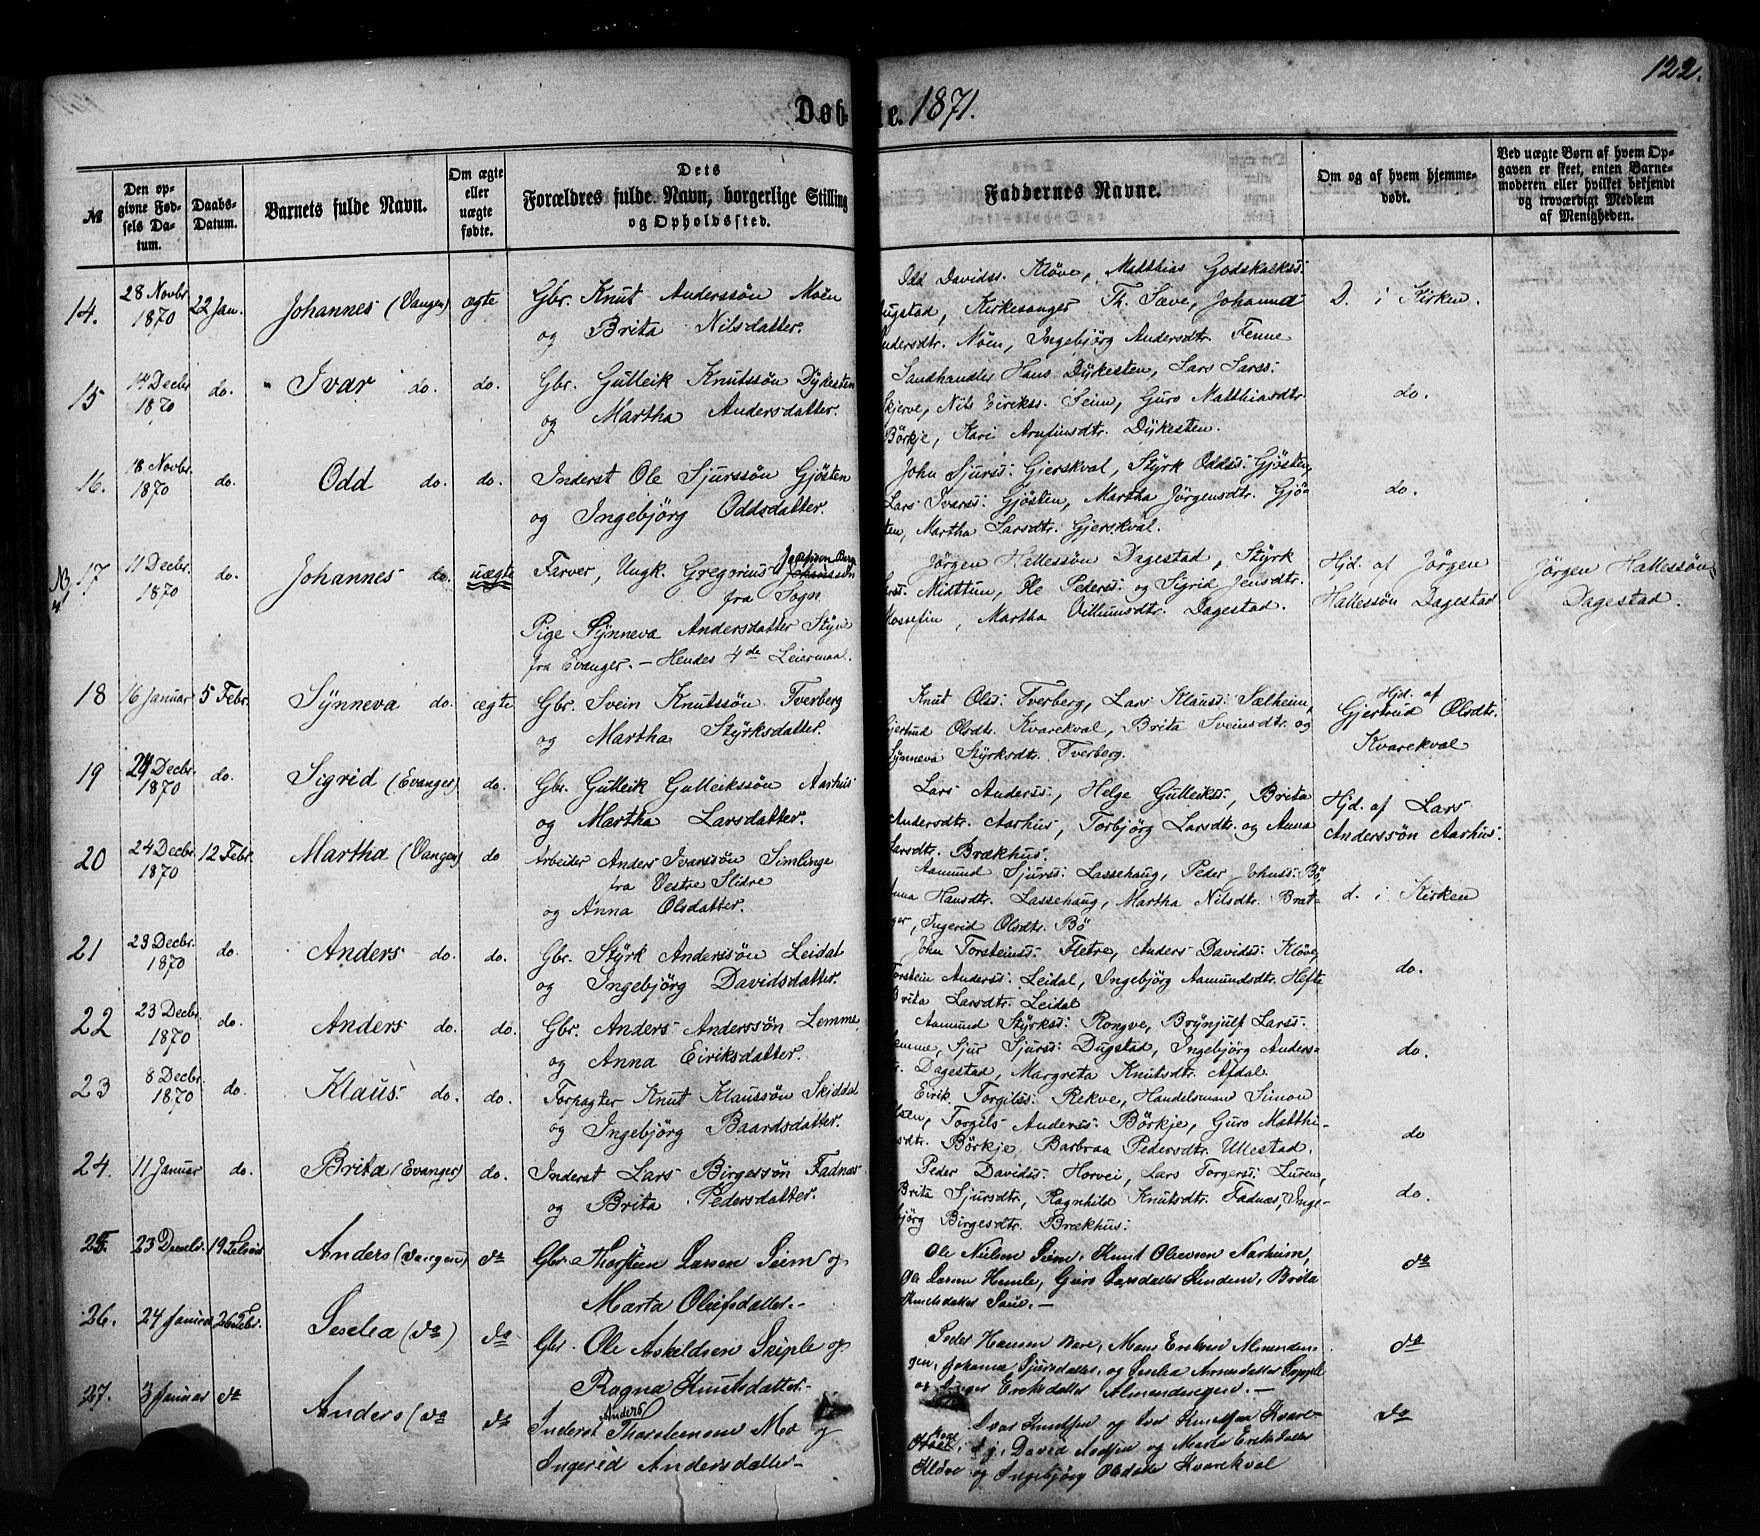 122.
Døbte. 1871.
№
Den opgivne Fødsels Datum.
Daabs-Datum.
Barnets fulde Navn.
Om ægte eller uægte fødte.
Dets Forældres fulde Navn, borgerlige Stilling og Opholdssted.
Faddernes Navne.
Om og af hvem hjemmedøbt.
Ved uægte Børn af hvem Opgaven er skeet, enten Barnemoderen eller hvilket bekjendt og troværdigt Medlem af Menigheden.
14. 28 Novbr. 1870 22 Jan. Johannes (Vangen) ægte Gbr. Knut Anderssøn Moen
og Brita Nilsdatter.
Odd Davidss. Kløve, Matthias Godskalkss:
ugstad, Kirkesanger Th. Sæve, Johanna
ndersdtr. Nøen, Ingebjørg Andersdtr. Fenne
D. i Kirken.
15 14 Decbr. 1870 do. Ivar do. do. Gbr. Gulleik Knutssøn Dykesten
og Martha Andersdatter.
Landhandler Hans Dykesten, Lars Larss:
kjerve, Nils Eirikss. Seim, Guro Matthiasdtr.
Børkje, Kari Arnfinsdtr. Dykesten.
do.
16. 18 Novbr. 1870 do. Odd do. do. Inderst Ole Sjurssøn Gjøsten
og Ingebjørg Oddsdatter.
John Sjurss: Gjerskval, Styrk Oddss: Gjøsten,
Lars Ivarss: Gjøsten, Martha Jørgensdtr. Gjø-
ten, Martha Larsdtr. Gjerskval.
do.
NB 17 11 Decbr. 1870 do. Johannes do. uægte Farver, Ungk. Gregorius
fra Sogn
Pige Synneva Andersdatter Styve
fra Evanger. – Hendes 4de Leiermaal.
Jørgen Hallessøn Dagestad, Styrk
rss: Midttun, Ole Pederss: og Sigrid Jensdtr.
Mossefin, Martha Villumsdtr. Dagestad.
Hjd. af Jørgen
Hallessøn Dagestad
Jørgen Hallessøn
Dagestad.
18 16 Januar 5 Febr. Synneva do. ægte Gbr. Svein Knutssøn Tverberg
og Martha Styrksdatter.
Knut Olss: Tverberg, Lars Klauss: Sælheim,
Gjertrud Olsdtr. Kvarekval, Brita Sveinsdtr. og
Synneva Styrksdtr. Tverberg.
Hjd. af
Gjertrud Olsdtr.
Kvarekval
19 24 Decbr. 1870 do. Sigrid (Evanger) do. Gbr. Gulleik Gulleikssøn Aarhus
og Martha Larsdatter.
Lars Anderss:, Helge Gulleikss:, Brita
Andersdtr. Aarhus, Torbjørg Larsdtr. og Anna
Larsdtr. Brækhus.
Hjd. af Lars
Anderssøn Aarhus.
20 24 Decbr. 1870 12 Febr. Martha (Vangen) do Arbeider Anders Ivarssøn Simlinge
fra Vestre Slidre
og Anna Olsdatter.
Aamund Sjurss: Lassehaug, Peder Johnss: Bø,
Anna Hansdtr. Lassehaug, Martha Nilsdtr. Brat-
ger, Ingerid Olsdtr. Bø
d. i Kirken
21 23 Decbr. 1870 do. Anders do. do. Gbr. Styrk Anderssøn Leidal
og Ingebjørg Davidsdatter.
John Torsteinss: Fletre, Anders Davidss: Kløve,
Torstein Anderss: Leidal, Ingebjørg Aamundsdtr. Hefte
Brita Larsdtr. Leidal
do.
22 23 Decbr. 1870 do. Anders do. do. Gbr. Anders Anderssøn Lemme,
og Anna Eiriksdatter.
Aamund Styrkss: Rongve, Brynjulf Larss:
emme, Sjur Sjurss: Dugstad, Ingebjørg Anders-
r. Dagestad, Margreta Knutsdtr. Afdal
do.
23 8 Decbr. 1870 do. Klaus do. do. Forpagter Knut Klaussøn Skiddal
og Ingebjørg Baardsdatter.
Eirik Torgilss: Rekve, Handelsmand Simon
lsen, Torgils Anderss: Børkje, Guro Matthi-
sdtr. Børkje, Barbraa Pedersdtr. Ullestad.
do
24. 11 Januar do. Brita (Evanger) do. Inderst Lars Birgessøn Fadnæs
og Brita Pedersdatter.
Peder Davidss: Horvei, Lars Torgerss: Luren,
Brita Sjursdtr., Ragnhild Knutsdtr. Fadnæs, Inge-
bjørg Birgesdtr. Brækhus.
do.
25. 23 Decebr. Anders (Vangen) do Gbr. Thorsteen Larsen Seim og
Marta Olufsdatter.–
Ole Nielsen Seim, Knut Olevsen Narheim,
Ole Larsen Hemle, Guro Larsdatter Kinden, Brita
Knutsdatter Saue. –
do
26. 24 Januar 26 Febr. Seselia (do) do Gbr. Ole Askeldsen Skiple og
Ragna Knutsdatter.–
Peder Hansen Bare, Mons Eriksen Almenden-
gen, Johanna Sjursdatter og Seselia
og Inger Eriksdatter Almendengen. –
do
27. 3 Januar do Anders (do do Inderst Anders Thorsteensen Mo og
Ingerid Andersdatter–
Ivar Knutsen og Iver Knutsen Kvare-
David Aadsen og Marta Eriksdatter
Kløve og Ingebjørg Olsdatter Kvarekval
do